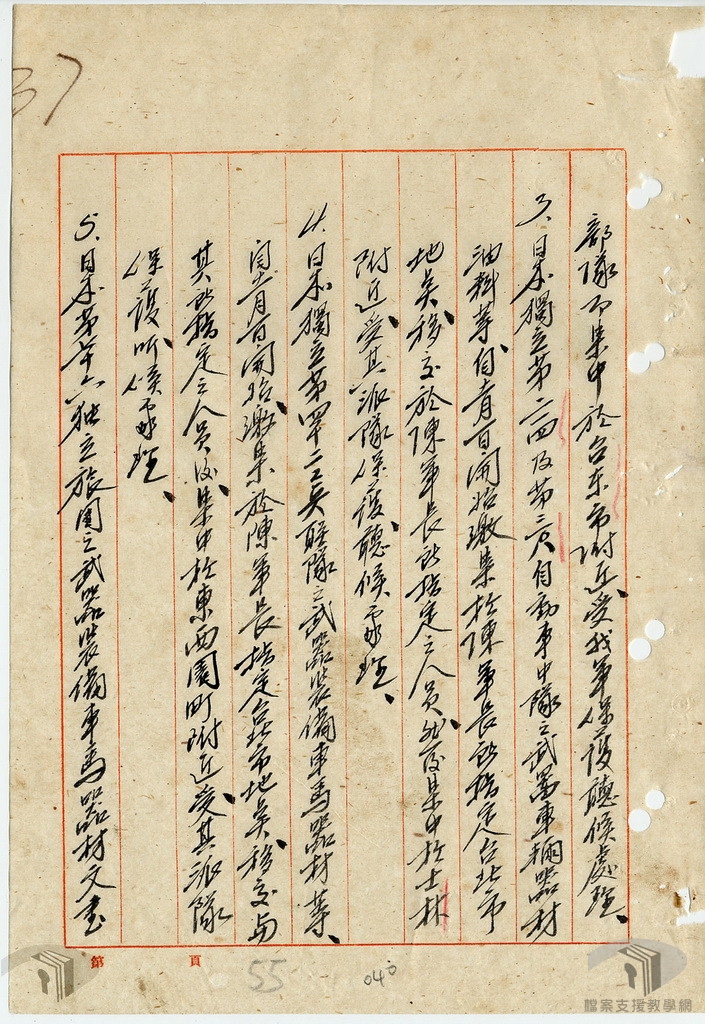 部隊而集中於台東市附近、受我軍保護聽候處理、
3、日本獨立第二四及第三八自動車中隊之武器車輛器材
油料等、自十一月一日開始繳集於陳軍長所指定台北市
地點移交於陳軍長所指定之人員、然後集中於士林
附近、受其派隊保護、聽候處理、
4、日本獨立第四十二工兵聯隊之武器裝備車馬器材等、
自十一月一日開始、繳集於陳軍長指定台北市地點、移交與
其所指定之人員、後集中於東西園町附近、受其派隊
保護、听候處理、
5、日本第七十六獨立旅團之武器裝備車馬器材文書
第 頁
37
55
040
檔案支援教學網